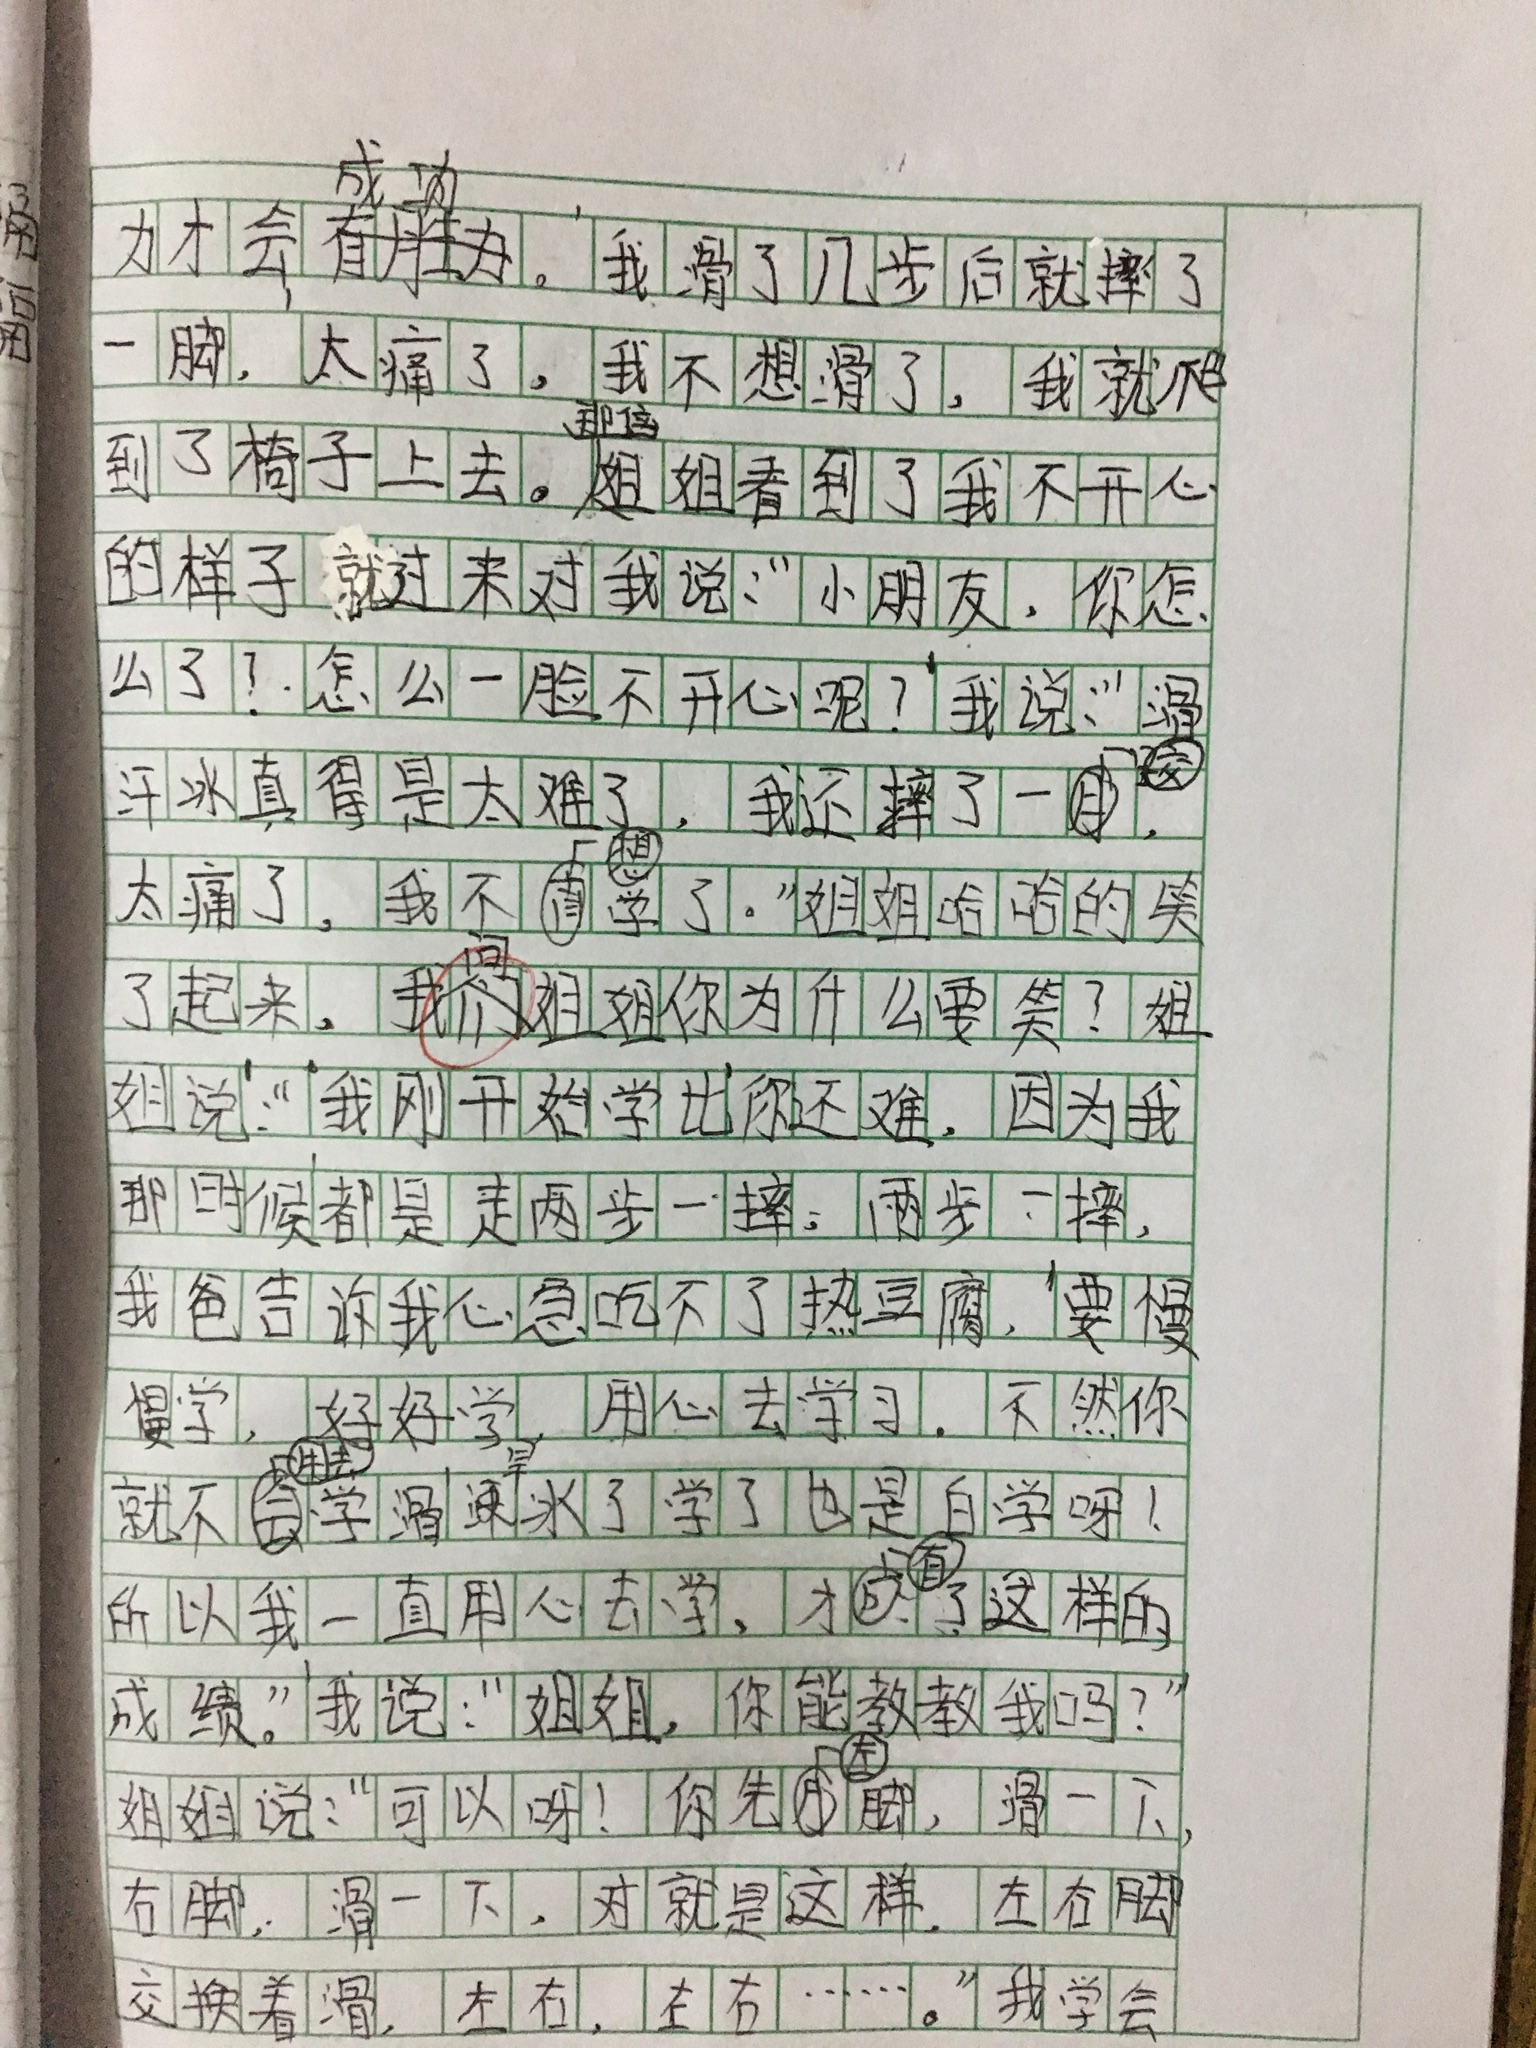 成功
力才会有胜为。我滑了几步后就摔了
一脚，太痛了。我不想滑了，我就爬
到了椅子上去。姐姐看到了我不开心
的样子就过来对我说：“小朋友，你怎
么了？怎么一脸不开心呢？我说：“滑
汗冰真得是太难了，我还摔了一
太痛了，我不想学了。”姐姐哈哈的笑
了起来，我问姐姐你为什么要笑？姐
姐说：“我刚开始学比你还难，因为我
那时候都是走两步一摔，两步一摔，
我爸告诉我心急吃不了热豆腐，要慢
慢学，好好学，用心去学习。不然你
就不会学滑冰了学了也是白学呀！
所以我一直用心去学，才有了这样的
成绩。”我说：“姐姐，你能教教我吗？”
姐姐说：“可以呀！你先左脚，滑一下，
右脚，滑一下，对就是这样，左右脚
交换着滑，左右，左右……。”我学会